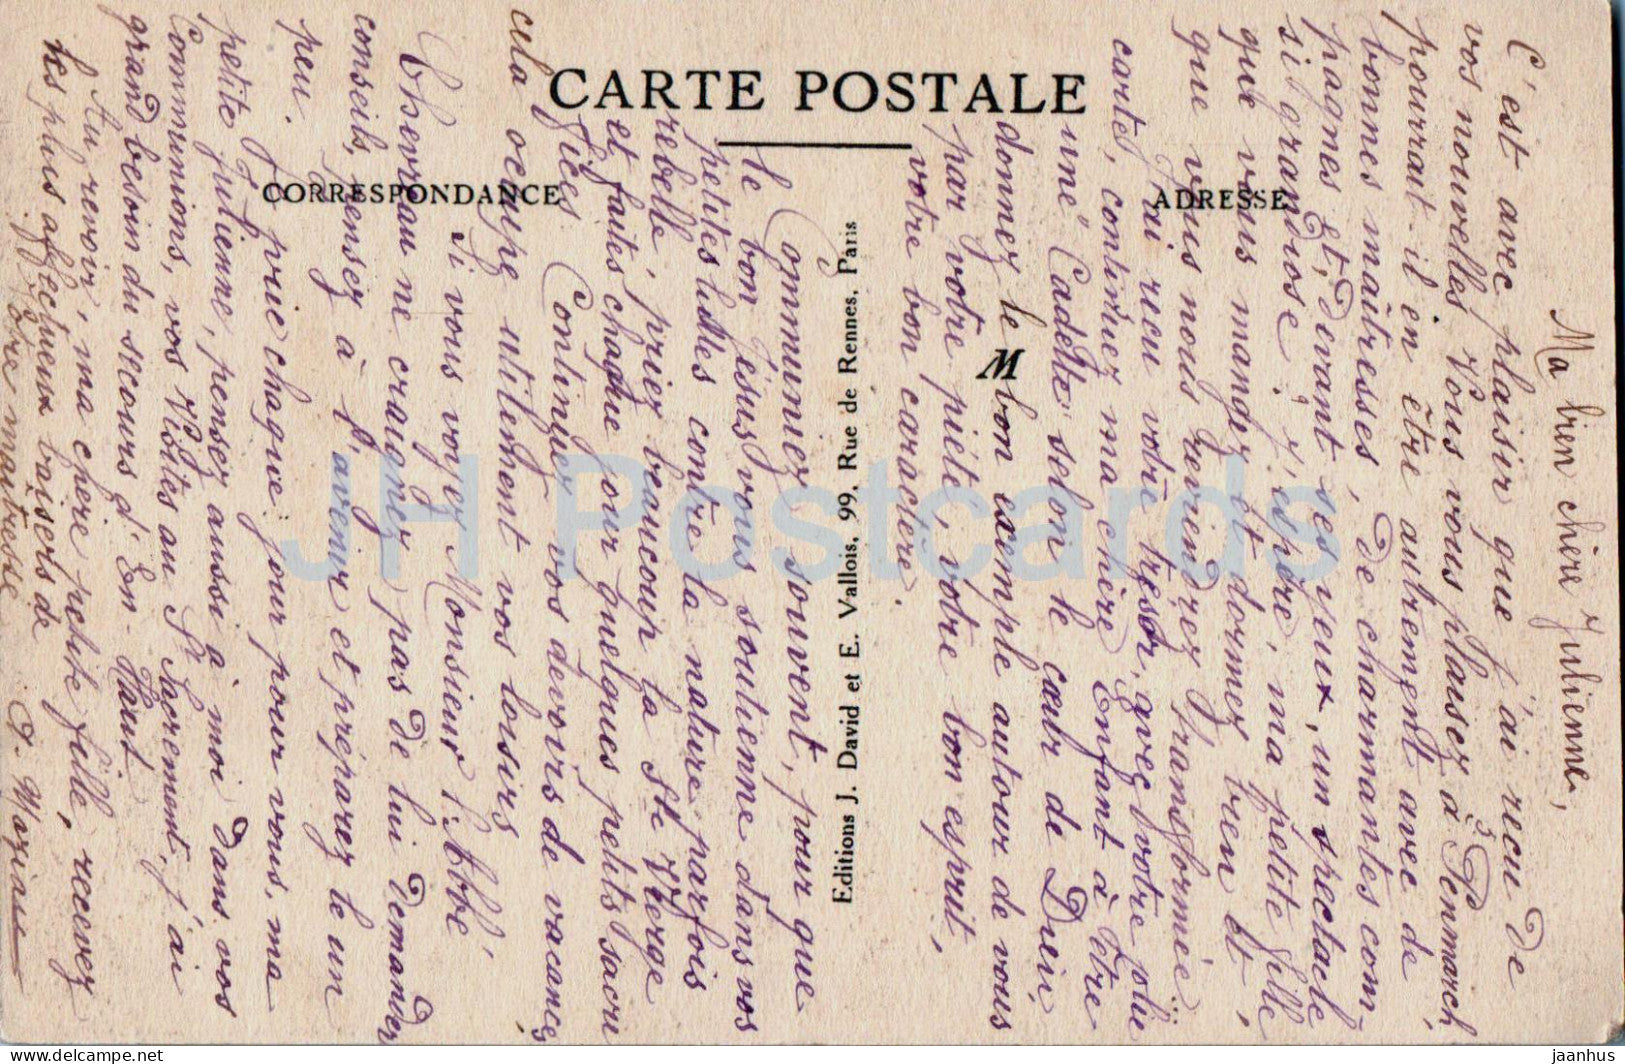 CARTE POSTALE
CORRESPONDANCE
ADRESSE
Editions J. David et E. Vallois, 99, Rue de Rennes, Paris
M
Ma bien chère Julienne,
C'est avec plaisir que j'ai reçu de
vos nouvelles. Vous vous plaisez à Penmarch,
pourrait-il en être autrement avec de
bonnes maîtresses, de charmantes com
pagnes et, devant ses yeux, un spectacle
si grandiose. J'espère, ma petite fille,
que vous mangez et dormez bien et,
que vous nous reviendrez transformée...
J'ai reçu votre trésor, avec votre jolie
carte, continuez ma chère Enfant à être
une "Cadette" selon le cœur de Dieu,
donnez le bon exemple autour de vous
par votre piété, votre bon esprit,
votre bon caractère.
Communiez souvent, pour que
le bon Jésus vous soutienne dans vos
petites luttes contre la nature parfois
rebelle, priez beaucoup la Ste Vierge
et faites chaque jour quelques petits sacri
fices. Continuez vos devoirs de vacances,
cela occupe utilement vos loisirs.
Si vous voyez Monsieur l'Abbé
Chevrau ne craignez pas de lui demander
conseils, pensez à l'avenir et préparez le un
peu.
Je prie chaque jour pour vous, ma
petite Julienne, pensez aussi à moi dans vos
Communions, vos Visites au St Sacrement, j'ai
grand besoin du secours d'En-Haut.
Au revoir, ma chère petite fille, recevez
les plus affectueux baisers de
Votre maîtresse
JH Postcards
www.delcampe.net
jaanhus